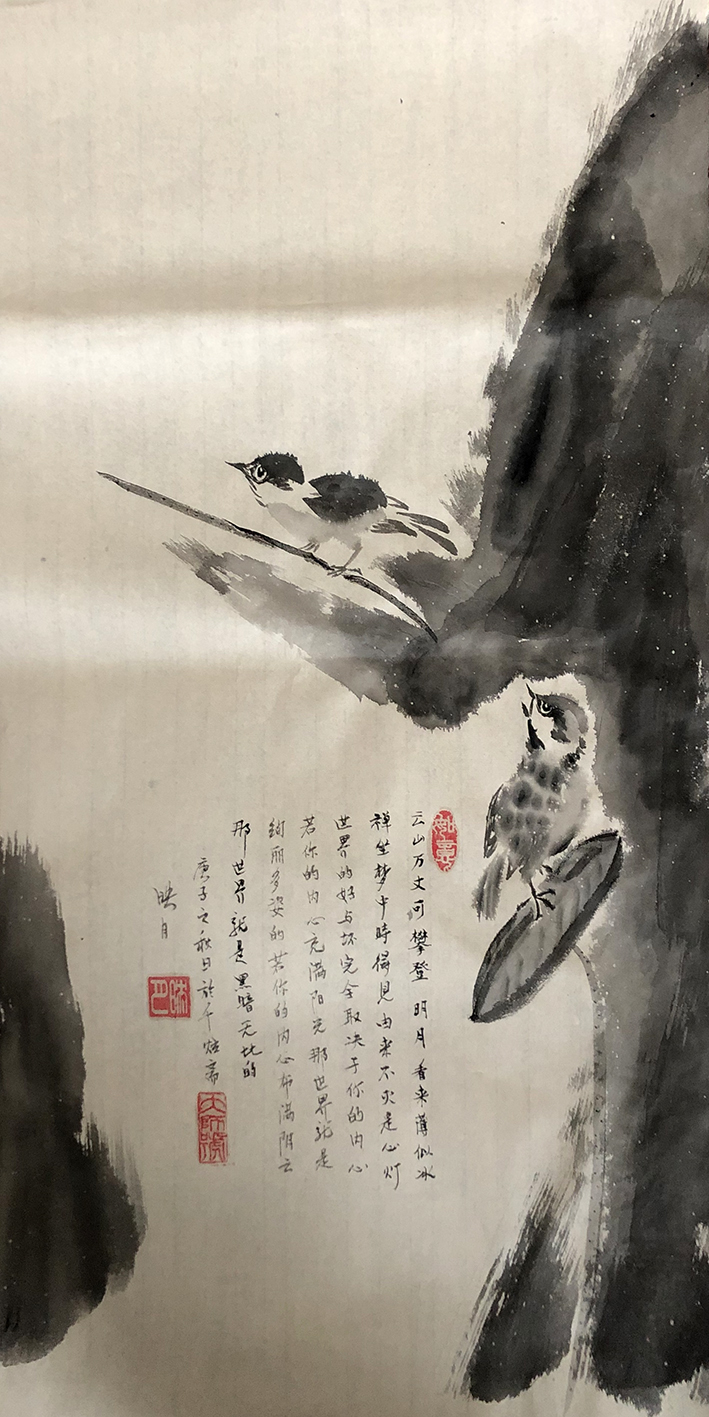 如意
云山万丈可攀登 明月看来薄似冰
禅坐梦中時得見由来不灭是心灯
世界的好与坏完全取决于你的内心
若你的内心充满阳光那世界就是
绚丽多姿的若你的内心布满阴云
那世界就是黑暗无比的
庚子之秋日於千斋
映月